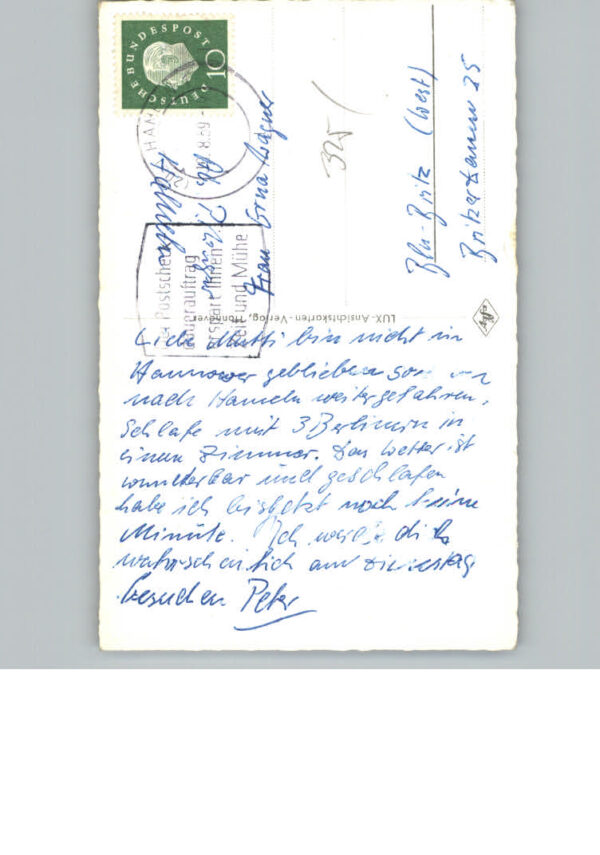 DEUTSCHE BUNDESPOST
10
HAM
8.59
Postsche
auerauftrag
erspart Ihnen
Zeit und Mühe
Frau Erna Wagner
Bln-Britz (West)
Britzerdamm 25
325
LUX-Ansichtskarten-Verlag, Hannover
Liebe Mutti bin nicht in
Hannower geblieben
nach Hameln weitergefahren.
Schlafe mit 3 Berlinern in
einen Zimmer. Das Wetter ist
wunderbar und geschlafen
habe ich bisjetzt noch keine
Minute. Ich werde dich
warscheinlich am Dienestag
besuchen Peter